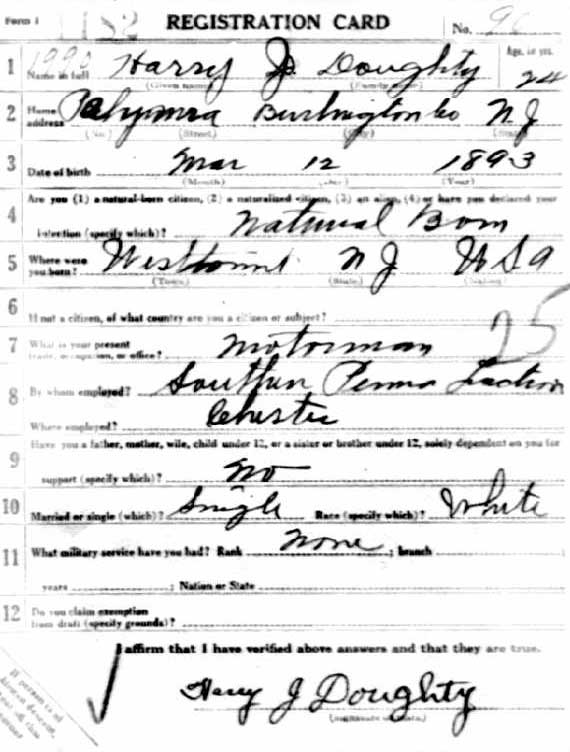 Form 1 1182 REGISTRATION CARD No. 96
1 1990 Harry J. Doughty Age, in yrs.
Name in full (Given name) (Family name) 24
2 Home address Palymra Burlington Co N J
(No.) (Street) (City) (State)
3 Date of birth Mar 12 1893
(Month) (Day) (Year)
Are you (1) a natural-born citizen, (2) a naturalized citizen, (3) an alien, (4) or have you declared your
4 intention (specify which)? Natural Born
5 Where were you born? N J U S A
(Town) (State) (Nation)
6 If not a citizen, of what country are you a citizen or subject?
7 What is your present trade, occupation, or office? Motorman 25
8 By whom employed? Southern Penna Traction
Where employed? Chester
Have you a father, mother, wife, child under 12, or a sister or brother under 12, solely dependent on you for
9 support (specify which)? No
10 Married or single (which)? Single Race (specify which)? White
11 What military service have you had? Rank None ; branch ;
years ; Nation or State
12 Do you claim exemption
from draft (specify grounds)?
I affirm that I have verified above answers and that they are true.
Harry J Doughty
(Signature or mark)
If person is of